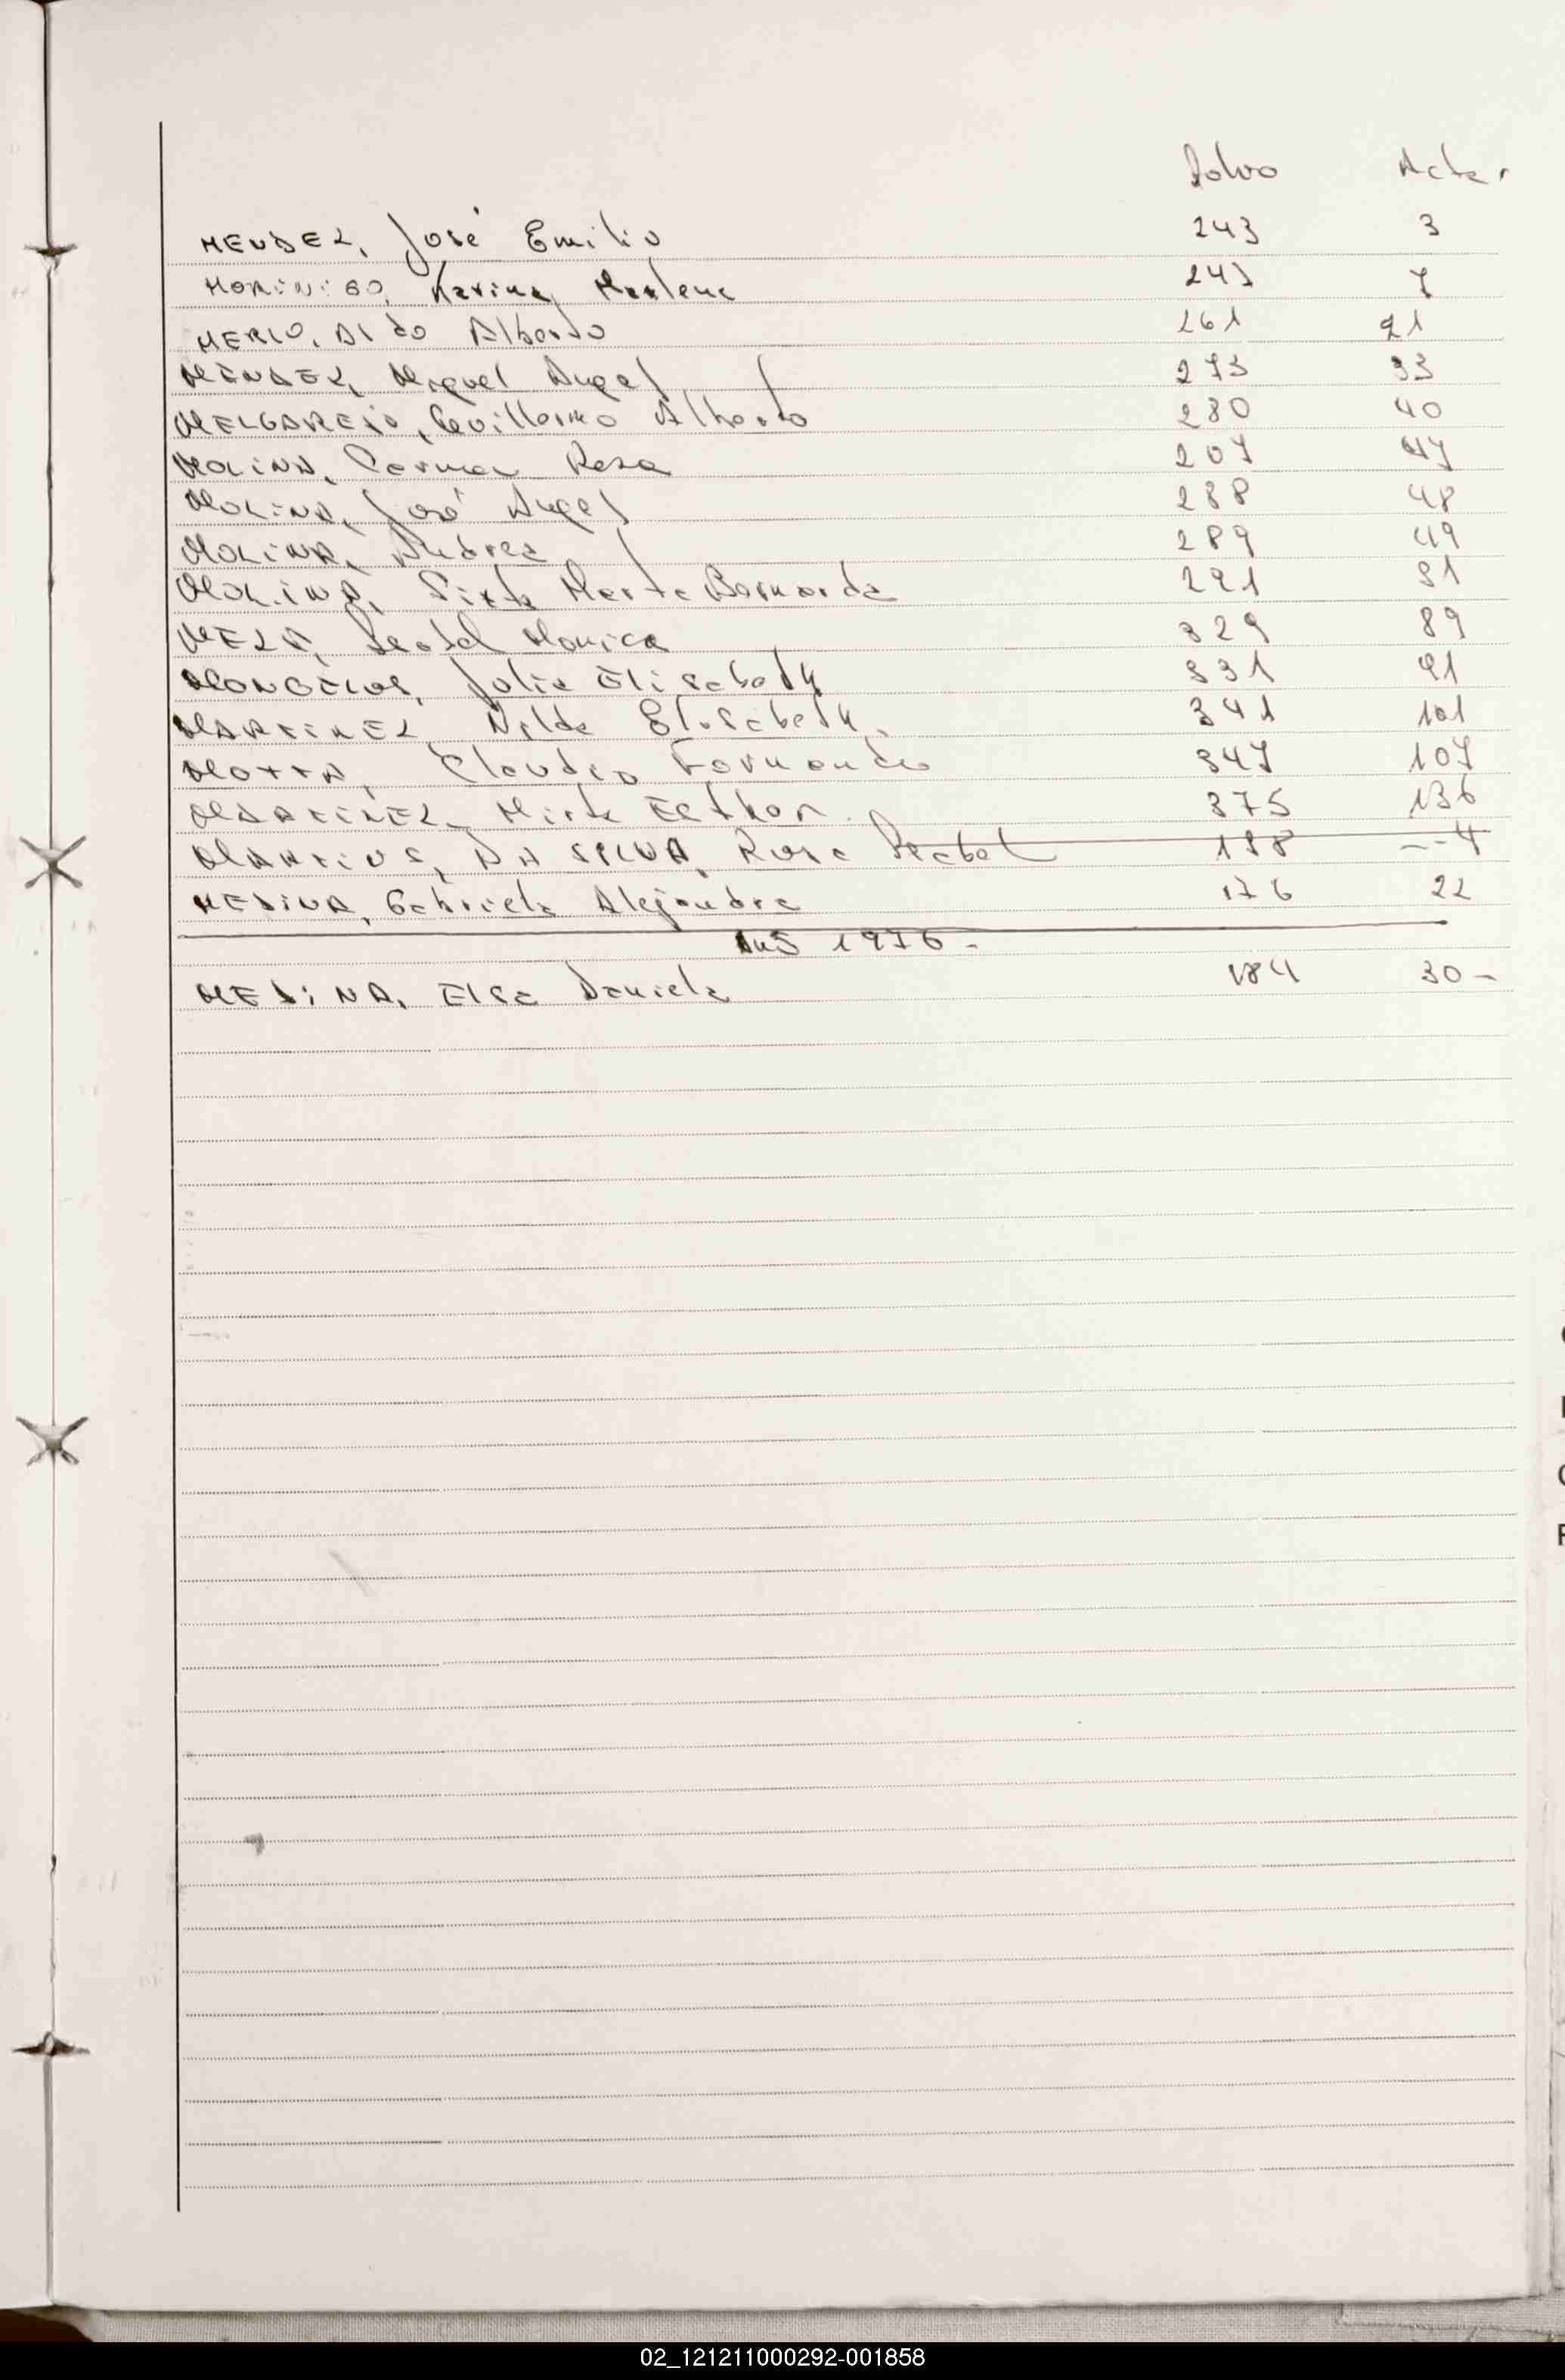 Folio Actas
MENDEZ, José Emilio 243 3
MORINIGO, Karina Marlene 247 7
MERLO, Aldo Alberto 261 21
MENDEZ, Miguel Angel 273 33
MELGAREJO, Guillermo Alberto 280 40
MOLINA, Carmen Rosa 287 47
MOLINA, José Angel 288 48
MOLINA, Andrea 289 49
MOLINA, Sixta Marta Bernarda 291 51
MEZA, Isabel Monica 329 89
MONGELOS, Julia Elisabeth 331 91
MARTINEZ Nilda Elisabeth 341 101
MOTTA, Claudio Fernando 347 107
MARTINEZ, Mirta Esther 375 136
MARTINS, DA SILVA, Rosa Isabel 158 4
MEDINA, Gabriela Alejandra 176 22
Año 1976.-
MEDINA, Elsa Daniela 184 30-
02_121211000292-001858